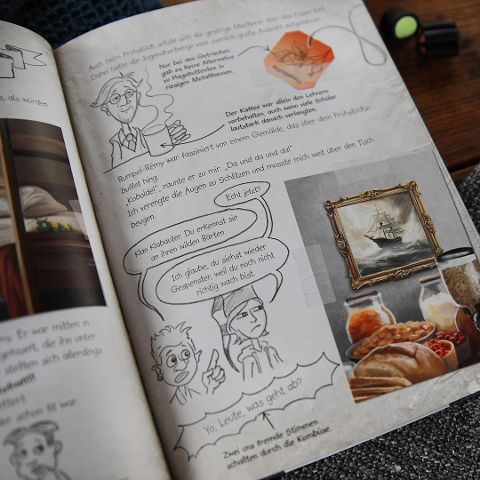 Auch beim Frühstück setzte sich die gestrige Meckerei über das Essen fort.
Dabei hatte die Jugendherberge eine ziemlich große Auswahl aufgefahren.
Nur bei den Getränken
gab es keine Alternative
zu Hagebuttentee in
riesigen Metallkannen.
Der Kaffee war allein den Lehrern
vorbehalten, auch wenn viele Schüler
lautstark danach verlangten.
Rumpel-Rémy war fasziniert von einem Gemälde, das über dem Frühstücks-
buffet hing.
„Kobolde!“, raunte er zu mir. „Da und da und da!“
Ich verengte die Augen zu Schlitzen und musste mich weit über den Tisch
beugen.
Echt jetzt?
Klan Klabauter. Du erkennst sie
an ihren wilden Bärten.
Ich glaube, du siehst wieder
Gespenster, weil du noch nicht
richtig wach bist.
Yo, Leute, was geht ab?
Zwei uns fremde Stimmen
schallten durch die Kombüse.
s, als würden
Er war mitten in
den ihn unter
stellten sich allerdings
schon fit war.